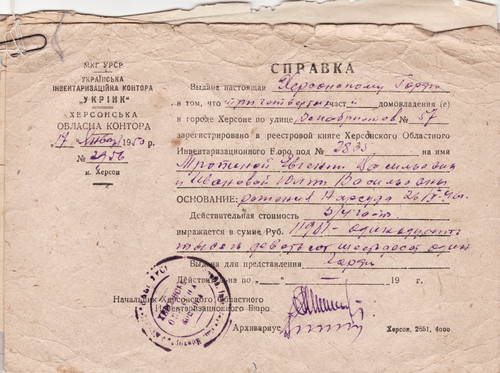 МКГ УРСР
УКРАЇНСЬКА
ІНВЕНТАРИЗАЦІЙНА КОНТОРА
"УКРІНК"
ХЕРСОНСЬКА
ОБЛАСНА КОНТОРА
17 1950 р.
№ 2956
м. Херсон
СПРАВКА
Выдана настоящая Херсонскому Горфо
в том, что три четвертых части домовладения (е)
в городе Херсоне по улице Декабристов № 57
зарегистрировано в реестровой книге Херсонского Областного
Инвентаризационного Бюро под № 2835 на имя
Евгении Васильевны
и Ивановой Васильевны
ОСНОВАНИЕ: решения Нарсуда
Действительная стоимость 3/4 част.
выражается в сумме Руб. 11961 - одинадцать
тысяч девятьсот шестьдесят один
Выдана для представления Горфо
Действительна по 19 г.
Начальник Херсонского Областного
Инвентаризационного Бюро
Архивариус
Херсон, 2651, 4000